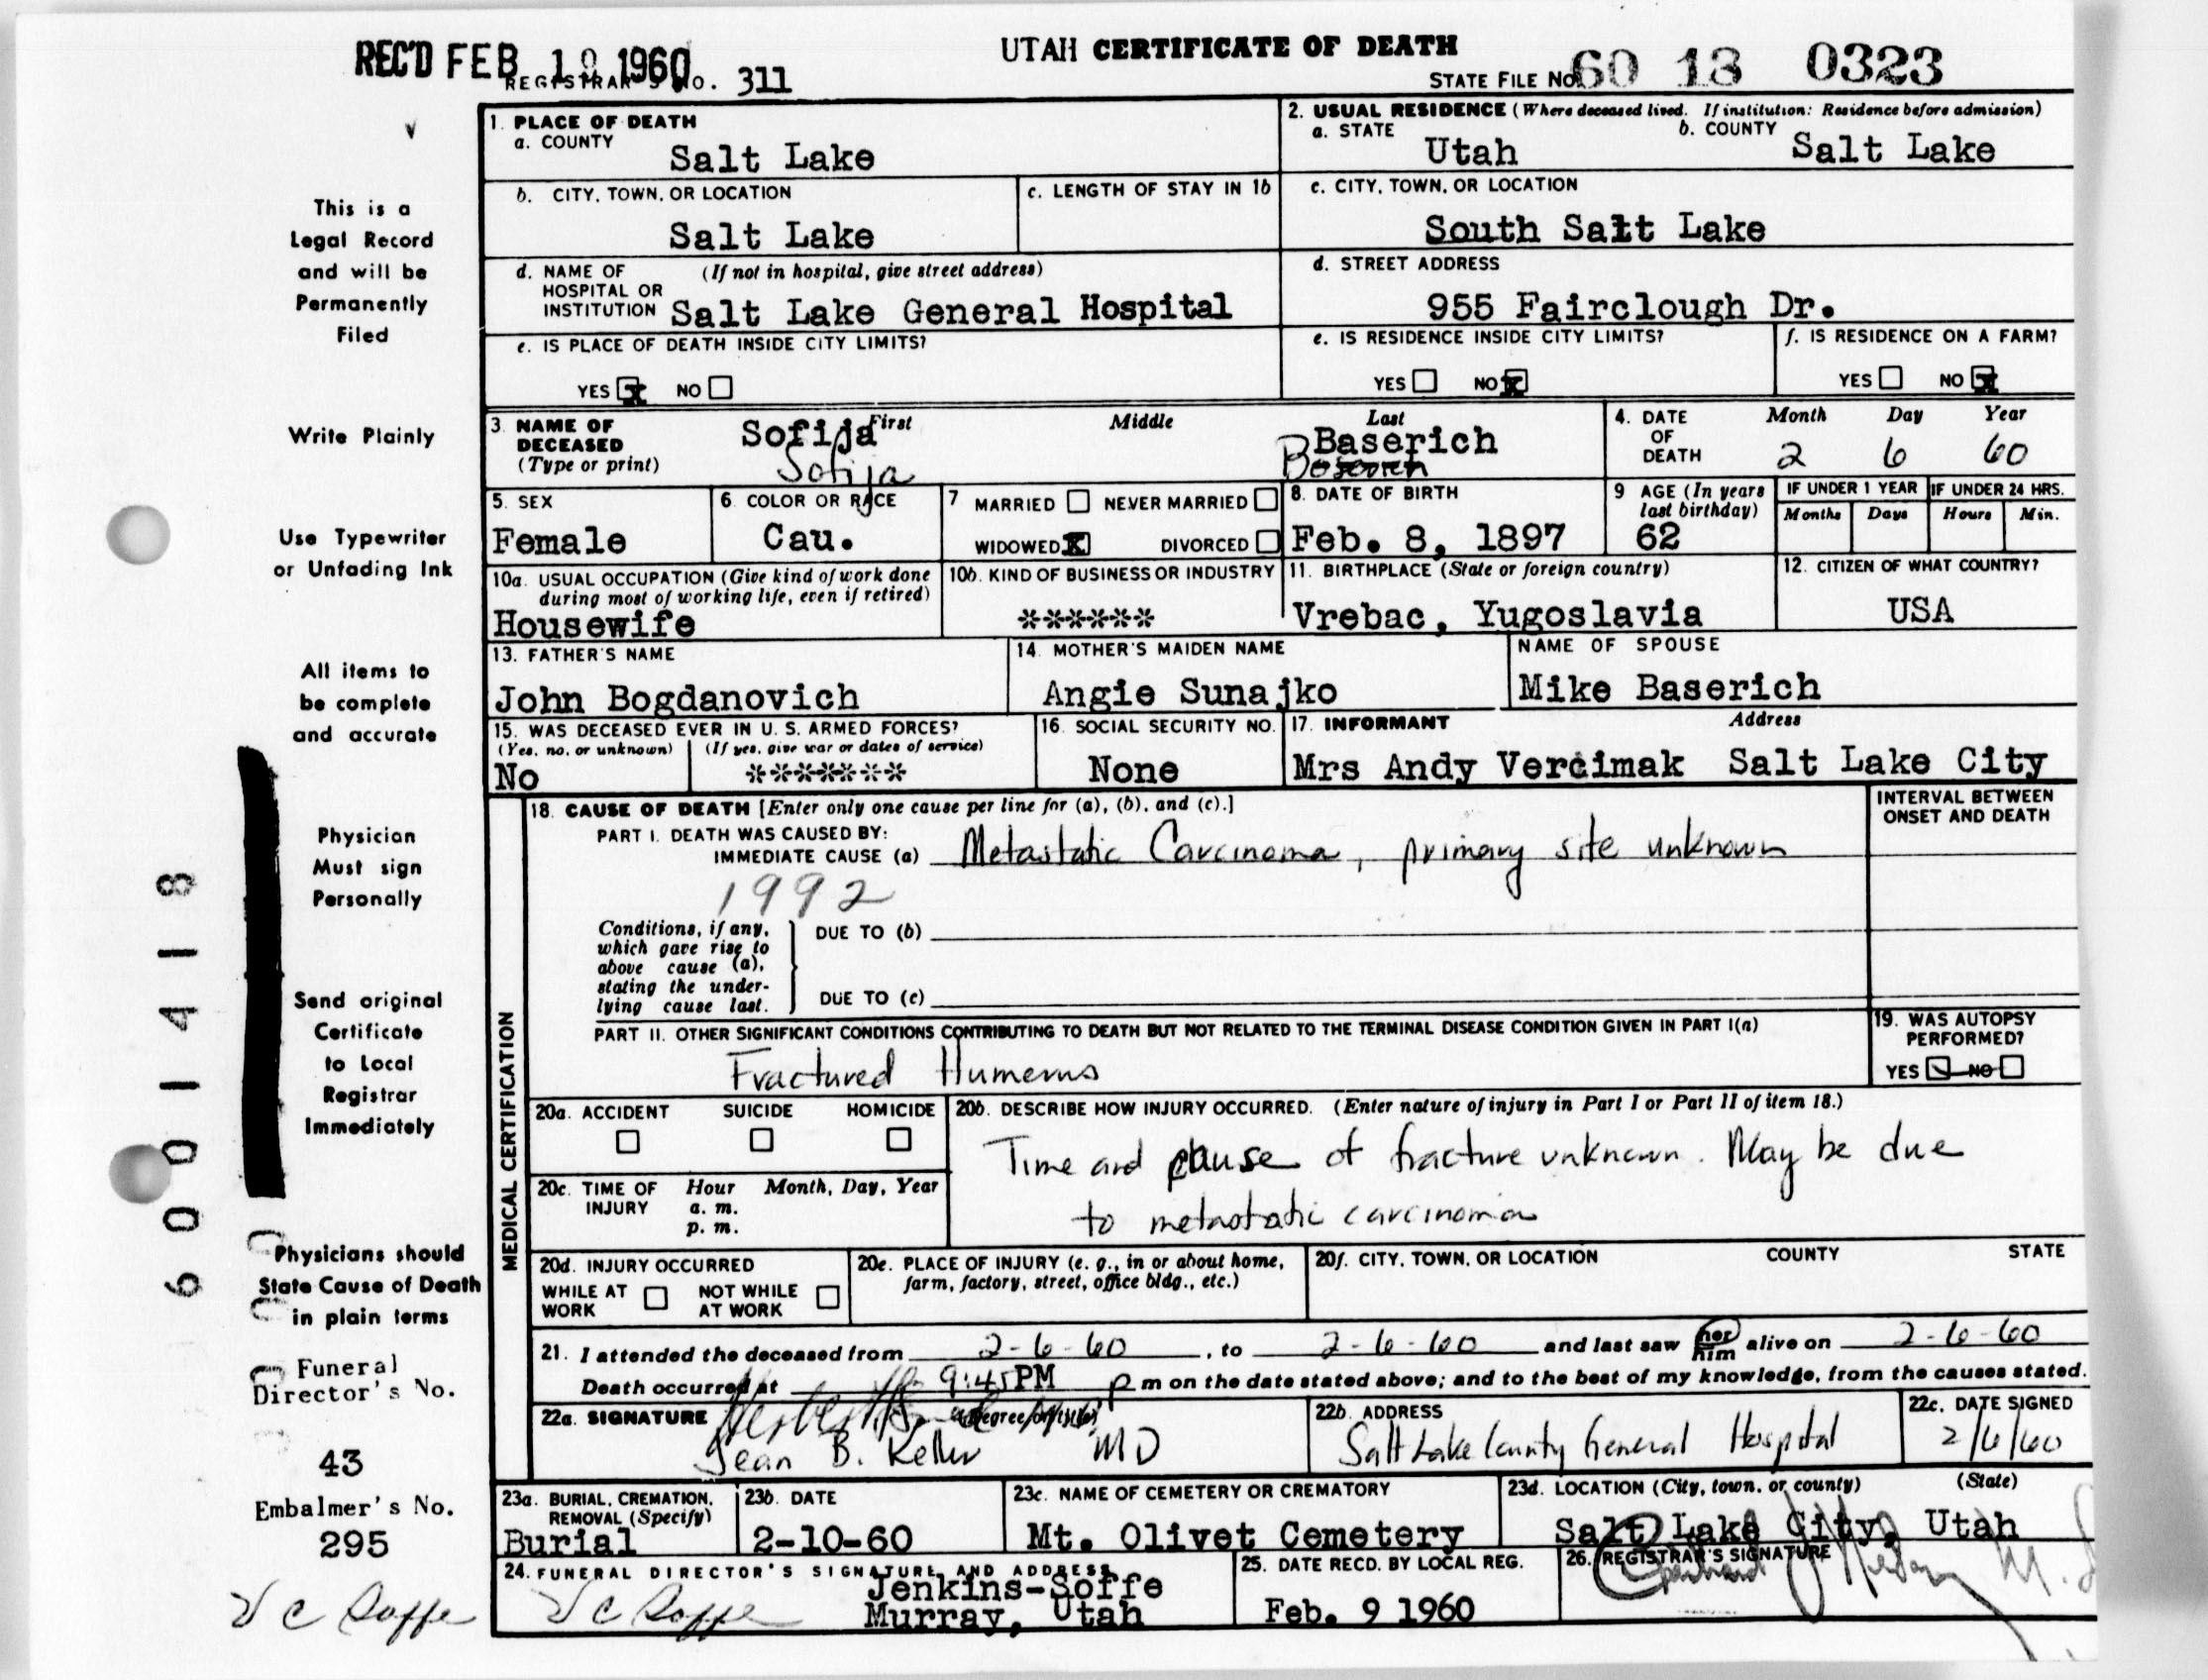 REC'D FEB 10 1960
UTAH CERTIFICATE OF DEATH
REGISTRAR'S NO. 311
STATE FILE NO. 60 18 0323
This is a
Legal Record
and will be
Permanently
Filed
Write Plainly
Use Typewriter
or Unfading Ink
All items to
be complete
and accurate
Physician
Must sign
Personally
Send original
Certificate
to Local
Registrar
Immediately
Physicians should
State Cause of Death
in plain terms
Funeral
Director's No.
43
Embalmer's No.
295
V C Soffe
6001418
1. PLACE OF DEATH
a. COUNTY
Salt Lake
2. USUAL RESIDENCE (Where deceased lived. If institution: Residence before admission)
a. STATE
Utah
b. COUNTY
Salt Lake
b. CITY, TOWN, OR LOCATION
Salt Lake
c. LENGTH OF STAY IN 1b
c. CITY, TOWN, OR LOCATION
South Salt Lake
d. NAME OF HOSPITAL OR INSTITUTION
(If not in hospital, give street address)
Salt Lake General Hospital
d. STREET ADDRESS
955 Fairclough Dr.
e. IS PLACE OF DEATH INSIDE CITY LIMITS?
YES X NO
e. IS RESIDENCE INSIDE CITY LIMITS?
YES NO X
f. IS RESIDENCE ON A FARM?
YES NO X
3. NAME OF DECEASED
(Type or print)
First Middle Last
Sofija Baserich
Sofija
4. DATE OF DEATH
Month Day Year
2 6 60
5. SEX
Female
6. COLOR OR RACE
Cau.
7 MARRIED NEVER MARRIED
WIDOWED X DIVORCED
8. DATE OF BIRTH
Feb. 8, 1897
9 AGE (In years last birthday)
62
IF UNDER 1 YEAR
Months Days
IF UNDER 24 HRS.
Hours Min.
10a. USUAL OCCUPATION (Give kind of work done during most of working life, even if retired)
Housewife
10b. KIND OF BUSINESS OR INDUSTRY
******
11. BIRTHPLACE (State or foreign country)
Vrebac, Yugoslavia
12. CITIZEN OF WHAT COUNTRY?
USA
13. FATHER'S NAME
John Bogdanovich
14. MOTHER'S MAIDEN NAME
Angie Sunajko
NAME OF SPOUSE
Mike Baserich
15. WAS DECEASED EVER IN U. S. ARMED FORCES?
(Yes, no, or unknown) (If yes, give war or dates of service)
No *******
16. SOCIAL SECURITY NO.
None
17. INFORMANT Address
Mrs Andy Vercimak Salt Lake City
MEDICAL CERTIFICATION
18. CAUSE OF DEATH [Enter only one cause per line for (a), (b), and (c).]
INTERVAL BETWEEN ONSET AND DEATH
PART I. DEATH WAS CAUSED BY:
IMMEDIATE CAUSE (a) Metastatic Carcinoma, primary site unknown
1992
Conditions, if any, which gave rise to above cause (a), stating the underlying cause last.
DUE TO (b)
DUE TO (c)
PART II. OTHER SIGNIFICANT CONDITIONS CONTRIBUTING TO DEATH BUT NOT RELATED TO THE TERMINAL DISEASE CONDITION GIVEN IN PART I(a)
Fractured Humerus
19. WAS AUTOPSY PERFORMED?
YES NO
20a. ACCIDENT SUICIDE HOMICIDE
20b. DESCRIBE HOW INJURY OCCURRED. (Enter nature of injury in Part I or Part II of item 18.)
Time and cause of fracture unknown. May be due
to metastatic carcinoma
20c. TIME OF INJURY
Hour Month, Day, Year
a. m.
p. m.
20d. INJURY OCCURRED
WHILE AT WORK NOT WHILE AT WORK
20e. PLACE OF INJURY (e. g., in or about home, farm, factory, street, office bldg., etc.)
20f. CITY, TOWN, OR LOCATION COUNTY STATE
21. I attended the deceased from 2-6-60, to 2-6-60 and last saw her him alive on 2-6-60
Death occurred at 9:45 PM p m on the date stated above; and to the best of my knowledge, from the causes stated.
22a. SIGNATURE (Degree or title)
Jean B. Keller MD
22b. ADDRESS
Salt Lake County General Hospital
22c. DATE SIGNED
2/6/60
23a. BURIAL, CREMATION, REMOVAL (Specify)
Burial
23b. DATE
2-10-60
23c. NAME OF CEMETERY OR CREMATORY
Mt. Olivet Cemetery
23d. LOCATION (City, town, or county) (State)
Salt Lake City, Utah
24. FUNERAL DIRECTOR'S SIGNATURE AND ADDRESS
V C Soffe
Jenkins-Soffe
Murray, Utah
25. DATE RECD. BY LOCAL REG.
Feb. 9 1960
26. REGISTRAR'S SIGNATURE